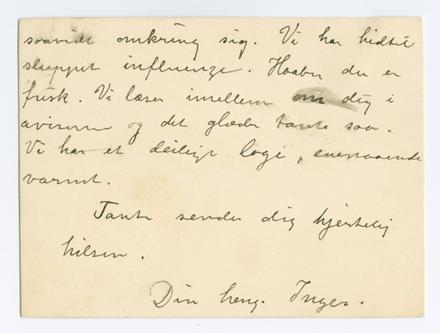 saavidt omkring sig. Vi har hidtil
sluppet influenza. Haaber du er
frisk. Vi læser imellem om dig i
aviserne og det glæder tante saa.
Vi har et deiligt logi, enestaaende
varmt.
Tante sender dig hjertelig
hilsen.
Din heng. Inger.